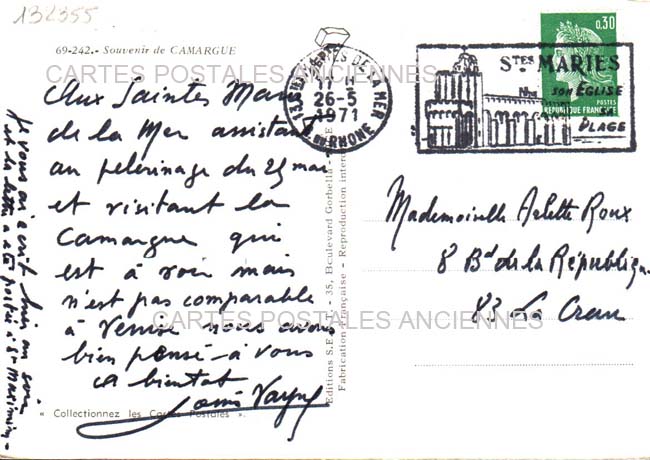 132355
69-242.- Souvenir de CAMARGUE
CARTES POSTALES ANCIENNES
Aux Saintes Maries
de la Mer assistant
au pélerinage du 25 mai
et visitant la
Camargue qui
est à voir mais
n'est pas comparable
à Venise nous avons
bien pensé à vous
à bientôt
« Collectionnez les Cartes Postales »
Je vous ai écrit hier au soir
et la lettre a été postée à St Maximin
Editions S.E. 35, Boulevard Gorbella
Fabrication Française - Reproduction interdite
STES MARIES DE LA MER
17 H
26-5
1971
BS DU RHONE
STES MARIES
SON ÉGLISE
SA
PLAGE
0,30
POSTES
REPUBLIQUE FRANÇAISE
Mademoiselle Arlette Roux
8 Bd de la République
83 La Crau
CARTES POSTALES ANCIENNES